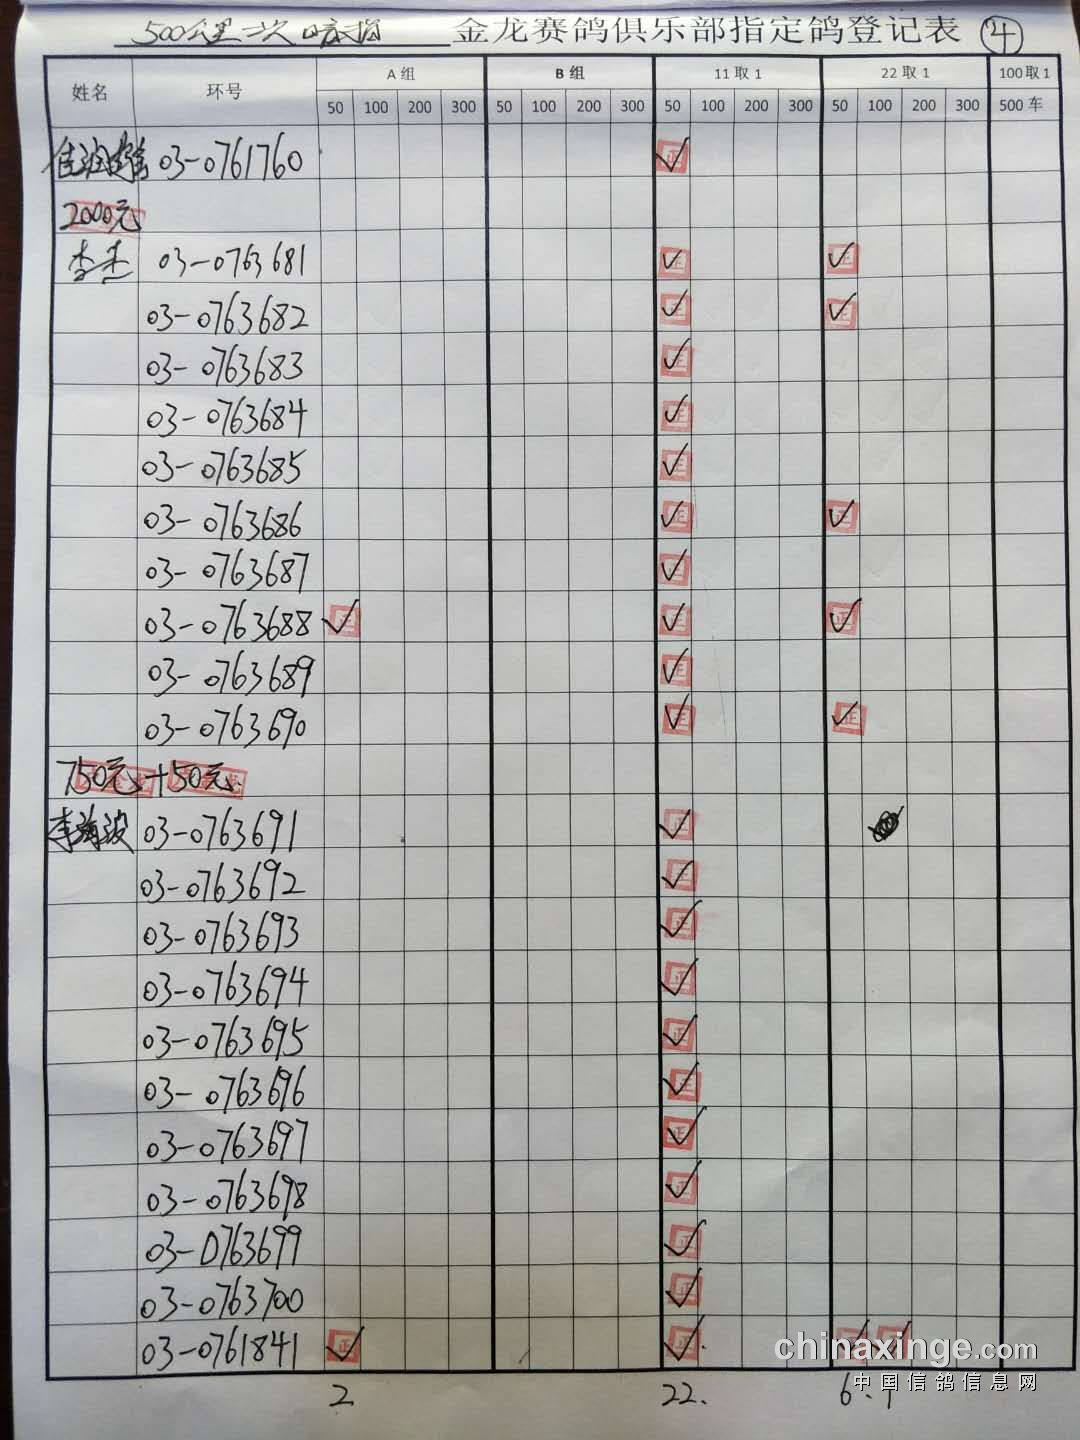 500公里二次 金龙赛鸽俱乐部指定鸽登记表 4
姓名 环号 A 组 B 组 11 取 1 22 取 1 100 取 1
50 100 200 300 50 100 200 300 50 100 200 300 50 100 200 300 500 车
03-0761760 ✓
2000元
李杰 03-0763681 ✓ ✓
03-0763682 ✓ ✓
03-0763683 ✓
03-0763684 ✓
03-0763685 ✓
03-0763686 ✓ ✓
03-0763687 ✓
03-0763688 ✓ ✓ ✓
03-0763689 ✓
03-0763690 ✓ ✓
750元+50元.
李海波 03-0763691 ✓
03-0763692 ✓
03-0763693 ✓
03-0763694 ✓
03-0763695 ✓
03-0763696 ✓
03-0763697 ✓
03-0763698 ✓
03-0763699 ✓
03-0763700 ✓
03-0761841 ✓ ✓ ✓ ✓
2 22. 6. 1
chinaxinge.com
中国信鸽信息网